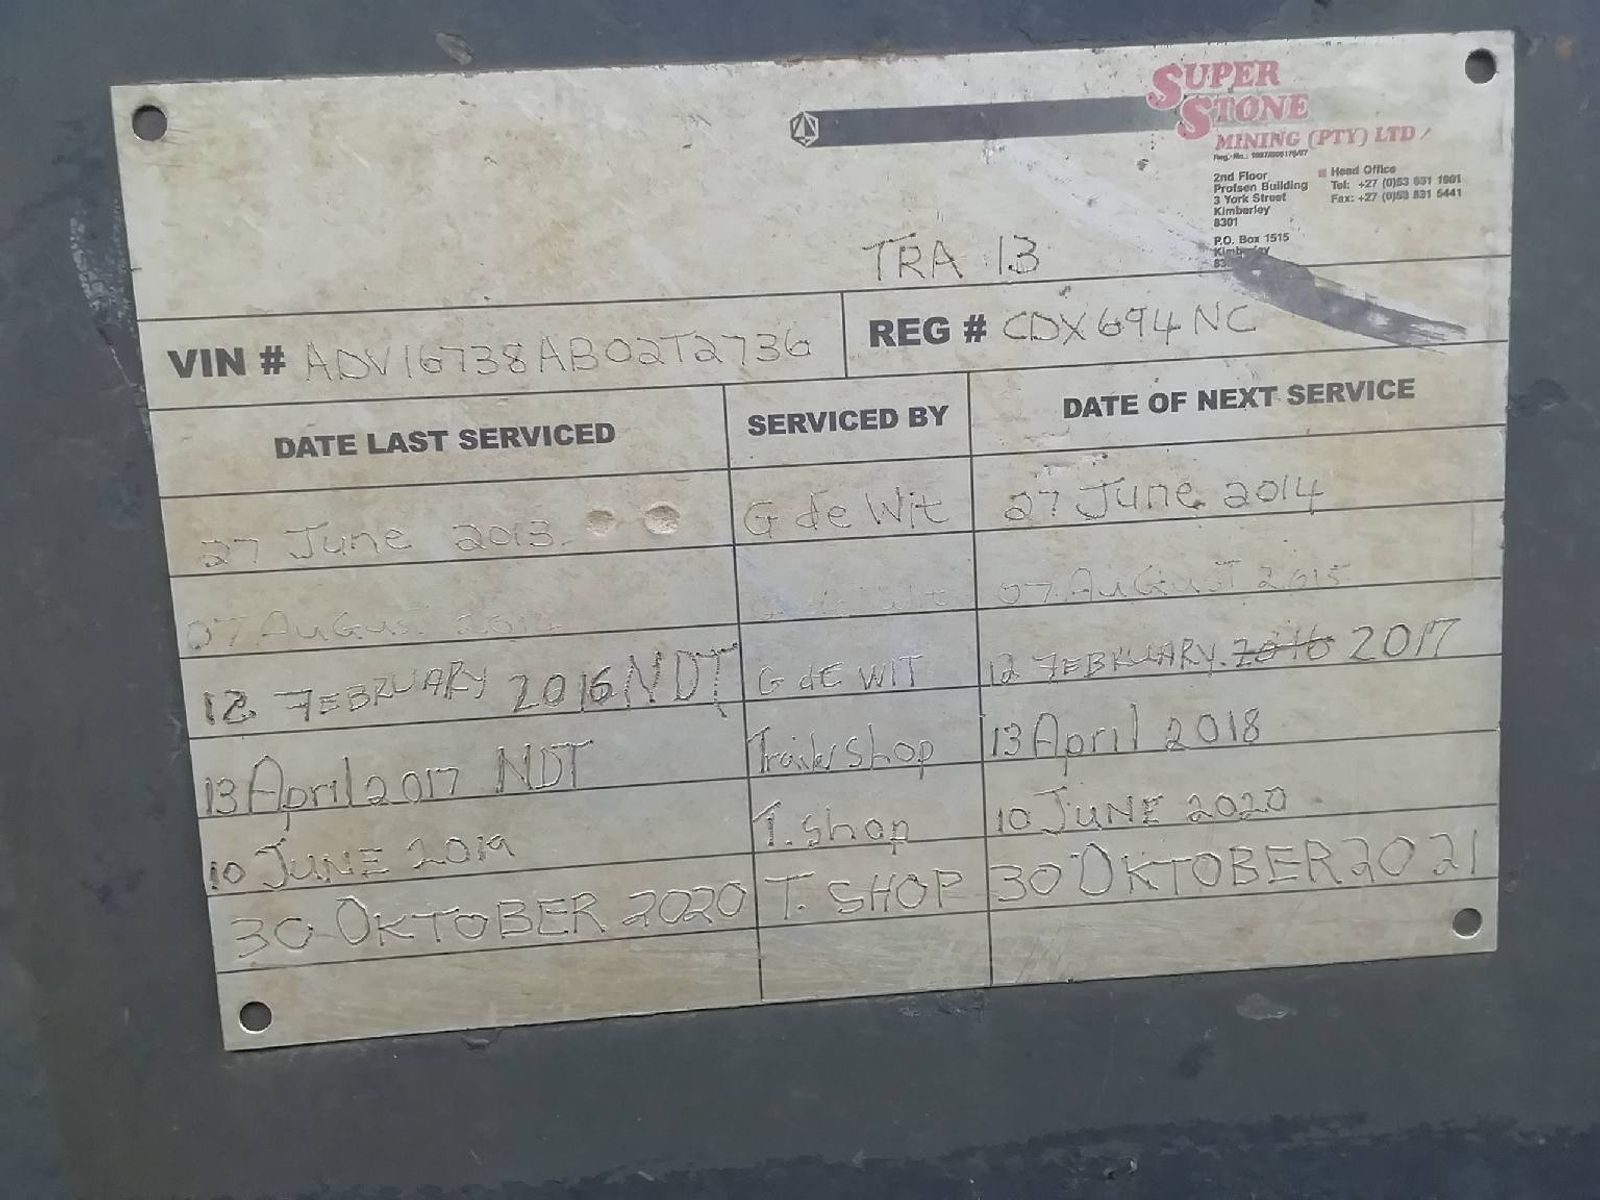 SUPER
STONE
MINING (PTY) LTD
2nd Floor
Profsen Building
3 York Street
Kimberley
8301
P.O. Box 1515
Kimberley
Head Office
Tel: +27 (0)53 831 1801
Fax: +27 (0)53 831 5441
TRA 13
VIN # ADV16738AB02T2736 REG # CDX694NC
DATE LAST SERVICED SERVICED BY DATE OF NEXT SERVICE
27 June 2013 G de Wit 27 June 2014
07 AUGUST 07 AUGUST 2015
12 FEBRUARY 2016 NDT G dE WIT 12 FEBRUARY 2016 2017
13 April 2017 NDT Trailer Shop 13 April 2018
10 JUNE 2019 T. Shop 10 JUNE 2020
30 OKTOBER 2020 T. SHOP 30 OKTOBER 2021